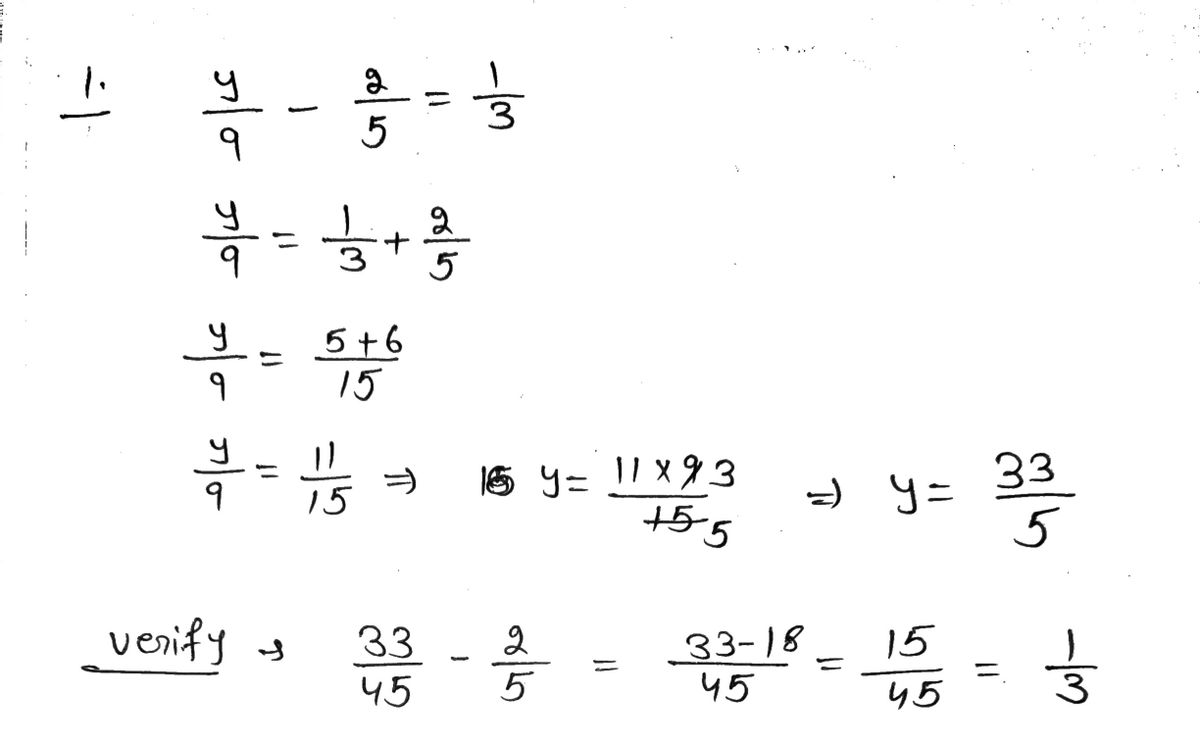 1. y/9 - 2/5 = 1/3
y/9 = 1/3 + 2/5
y/9 = 5+6/15
y/9 = 11/15 ⇒ y = 11×9 3/15 5 ⇒ y = 33/5
verify → 33/45 - 2/5 = 33-18/45 = 15/45 = 1/3